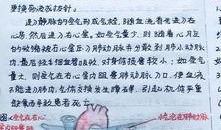 更换易凝或抗凝。
进入静脉的空气形成气栓,随血流着先进入右
心房,然后进入右心室。如空气量少,则随着心脏
的收缩被右心室压入肺动脉并分散到肺小动脉
内,最后经毛细血管吸收,对身体损害较小;如空气
量大,则空气在右心室内阻塞肺动脉入口,使血液
不能进入肺内,气体交换发生障碍,引起机体严重
缺氧而导致患者死亡。
空气在右心